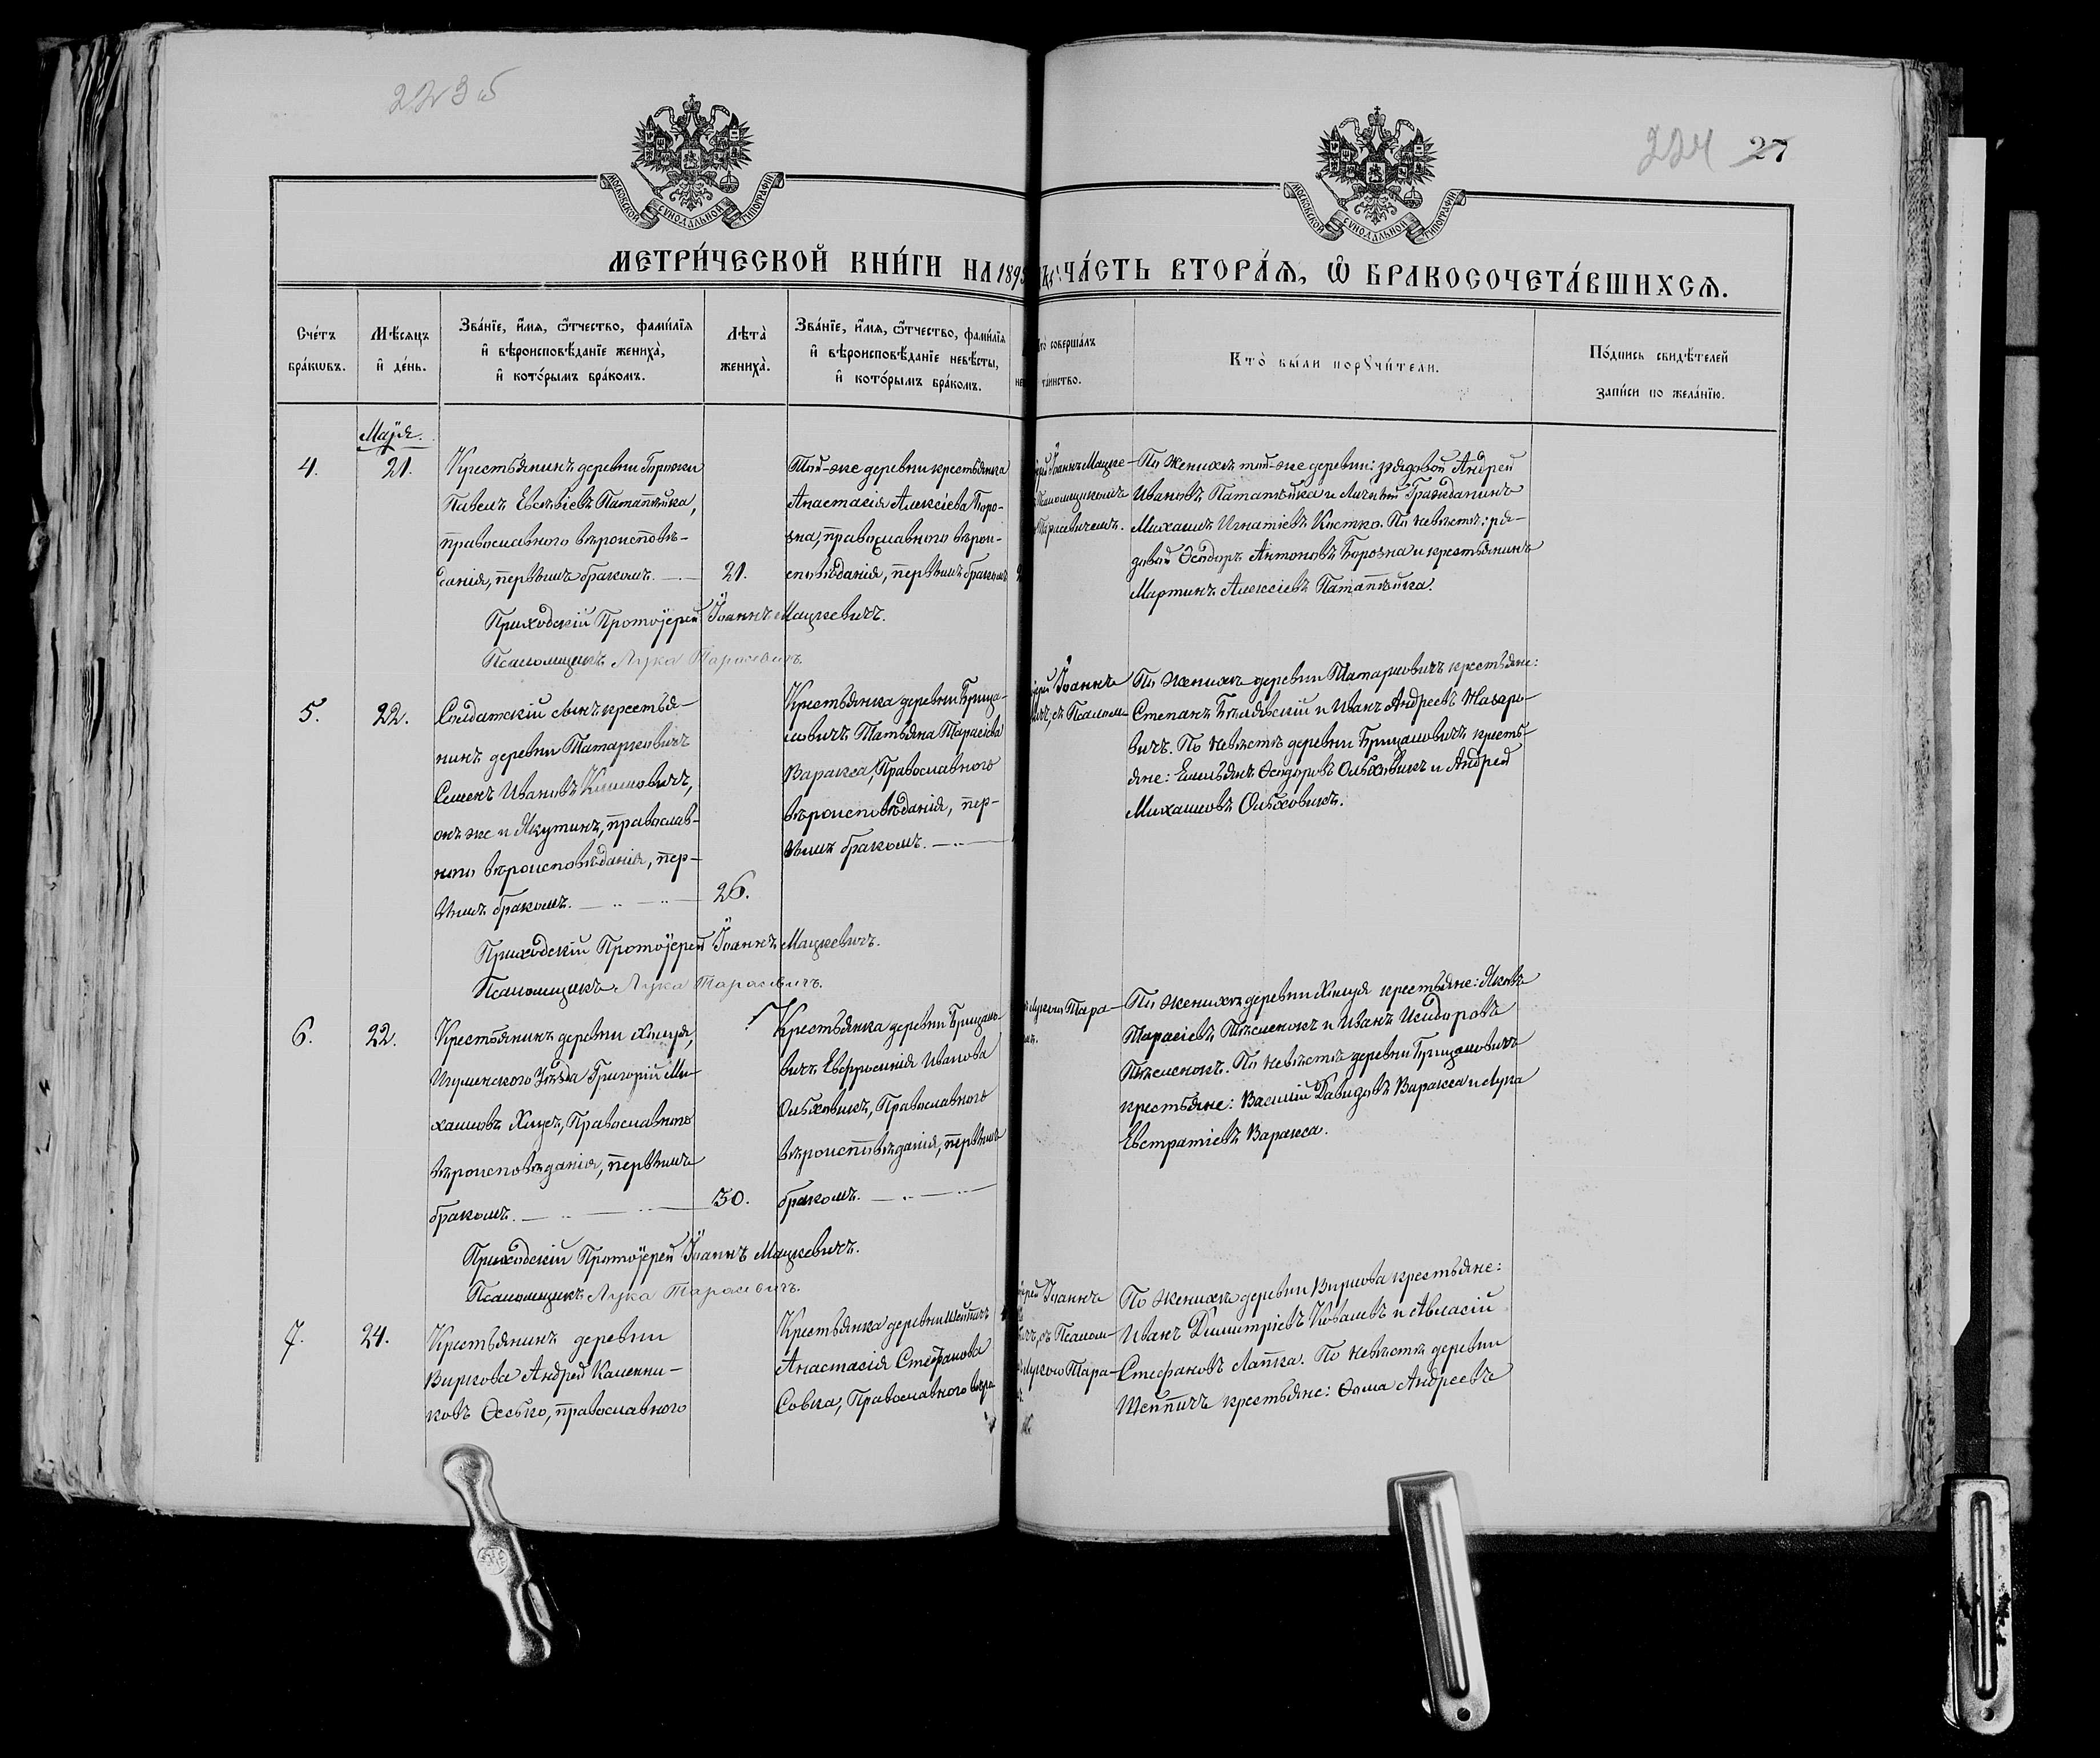 223 об
224 27
МОСКОВСКОЙ СѴНОДАЛЬНОЙ ТИПОГРАФІИ
МОСКОВСКОЙ СѴНОДАЛЬНОЙ ТИПОГРАФІИ
МЕТРИ́ЧЕСКОЙ КНИ́ГИ НА 189
ЧА́СТЬ ВТОРА́Ѧ, Ѡ БРАКОСОЧЕТА́ВШИХСѦ.
Сче́тъ бра́кѡвъ.
Мѣ́сѧцъ и҆ де́нь.
Зва́нїе, и҆́мѧ, ѻ҆́тчество, фами́лїѧ
и҆ вѣроисповѣ́данїе жениха̀,
и҆ кото́рымъ бра́комъ.
Лѣта̀ жениха̀.
Зва́нїе, и҆́мѧ, ѻ҆́тчество, фами́лїѧ
и҆ вѣроисповѣ́данїе невѣ́сты,
и҆ кото́рымъ бра́комъ.
соверша́лъ
та́инство.
Кто̀ бы́ли порꙋчи́тели.
По́дпись свидѣ́телей
за́писи по жела́нїю.
Маія.
4.
21.
Крестьянинъ деревни Горожи
Павелъ Евсевіевъ Потапейка,
православного вѣроисповѣ-
данія, первымъ бракомъ.
21.
Той-же деревни крестьянка
Анастасія Алексіева Боро-
зна, православного вѣрои-
сповѣданія, первымъ бракомъ
Іоаннъ Мацке-
Псаломщикомъ
Тарасевичемъ.
По женихѣ той-же деревни: рядовой Андрей
Ивановъ Потапейка и Личный Гражданинъ
Михаилъ Игнатіевъ Костко. По невѣстѣ: ря-
довой Ѳеодоръ Антоновъ Борозна и крестьянинъ
Мартинъ Алексіевъ Потапейка.
Приходскій Протоіерей Іоаннъ Мацкевичъ.
Псаломщикъ Лука Тарасевичъ.
5.
22.
Солдатскій сынъ крестья-
нинъ деревни Татарковичъ
Семенъ Ивановъ Климовичъ,
онъ же и Якутинъ, православ-
ного вѣроисповѣданія, пер-
вымъ бракомъ.
26.
Крестьянка деревни Брица-
ловичъ Татьяна Тарасіева
Варакса, Православного
вѣроисповѣданія, пер-
вымъ бракомъ.
Іоаннъ
съ Псалом-
По женихѣ деревни Татарковичъ крестьяне:
Степанъ Бѣлявскій и Иванъ Андреевъ Назаро-
вичъ. По невѣстѣ деревни Брицаловичъ кресть-
яне: Емельянъ Ѳеодоровъ Ольховикъ и Андрей
Михаиловъ Ольховикъ.
Приходскій Протоіерей Іоаннъ Мацкевичъ.
Псаломщикъ Лука Тарасевичъ.
6.
22.
Крестьянинъ деревни Хоцуя,
Игуменского Уѣзда Григорій Ми-
хаиловъ Хоцуя, Православного
вѣроисповѣданія, первымъ
бракомъ.
30.
Крестьянка деревни Брицало-
вичъ Евфросинія Иванова
Ольховикъ, Православного
вѣроисповѣданія, первымъ
бракомъ.
Лукою Тара-
По женихѣ деревни Хоцуя крестьяне: Яковъ
Тарасіевъ Пѣсменокъ и Иванъ Исидоровъ
Пѣсменокъ. По невѣстѣ деревни Брицаловичъ
крестьяне: Василій Давидовъ Варакса и Лука
Евстратіевъ Варакса.
Приходскій Протоіерей Іоаннъ Мацкевичъ.
Псаломщикъ Лука Тарасевичъ.
7.
24.
Крестьянинъ деревни
Виркова Андрей Каленни-
ковъ Ѳесько, православного
Крестьянка деревни Шейпичъ
Анастасія Стефанова
Совка, Православного вѣро
Іоаннъ
съ Псалом-
Лукою Тара-
По женихѣ деревни Виркова крестьяне:
Иванъ Димитріевъ Ковалевъ и Авласій
Стефановъ Лапка. По невѣстѣ деревни
Шейпичъ крестьяне: Ѳома Андреевъ